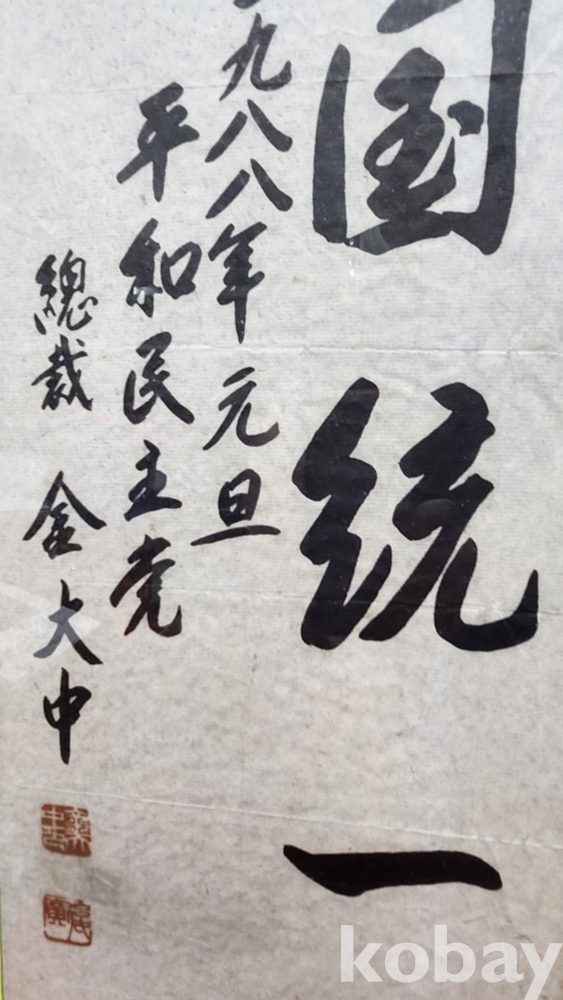 国統一
九八八年元旦
平和民主党
總裁 金大中
kobay